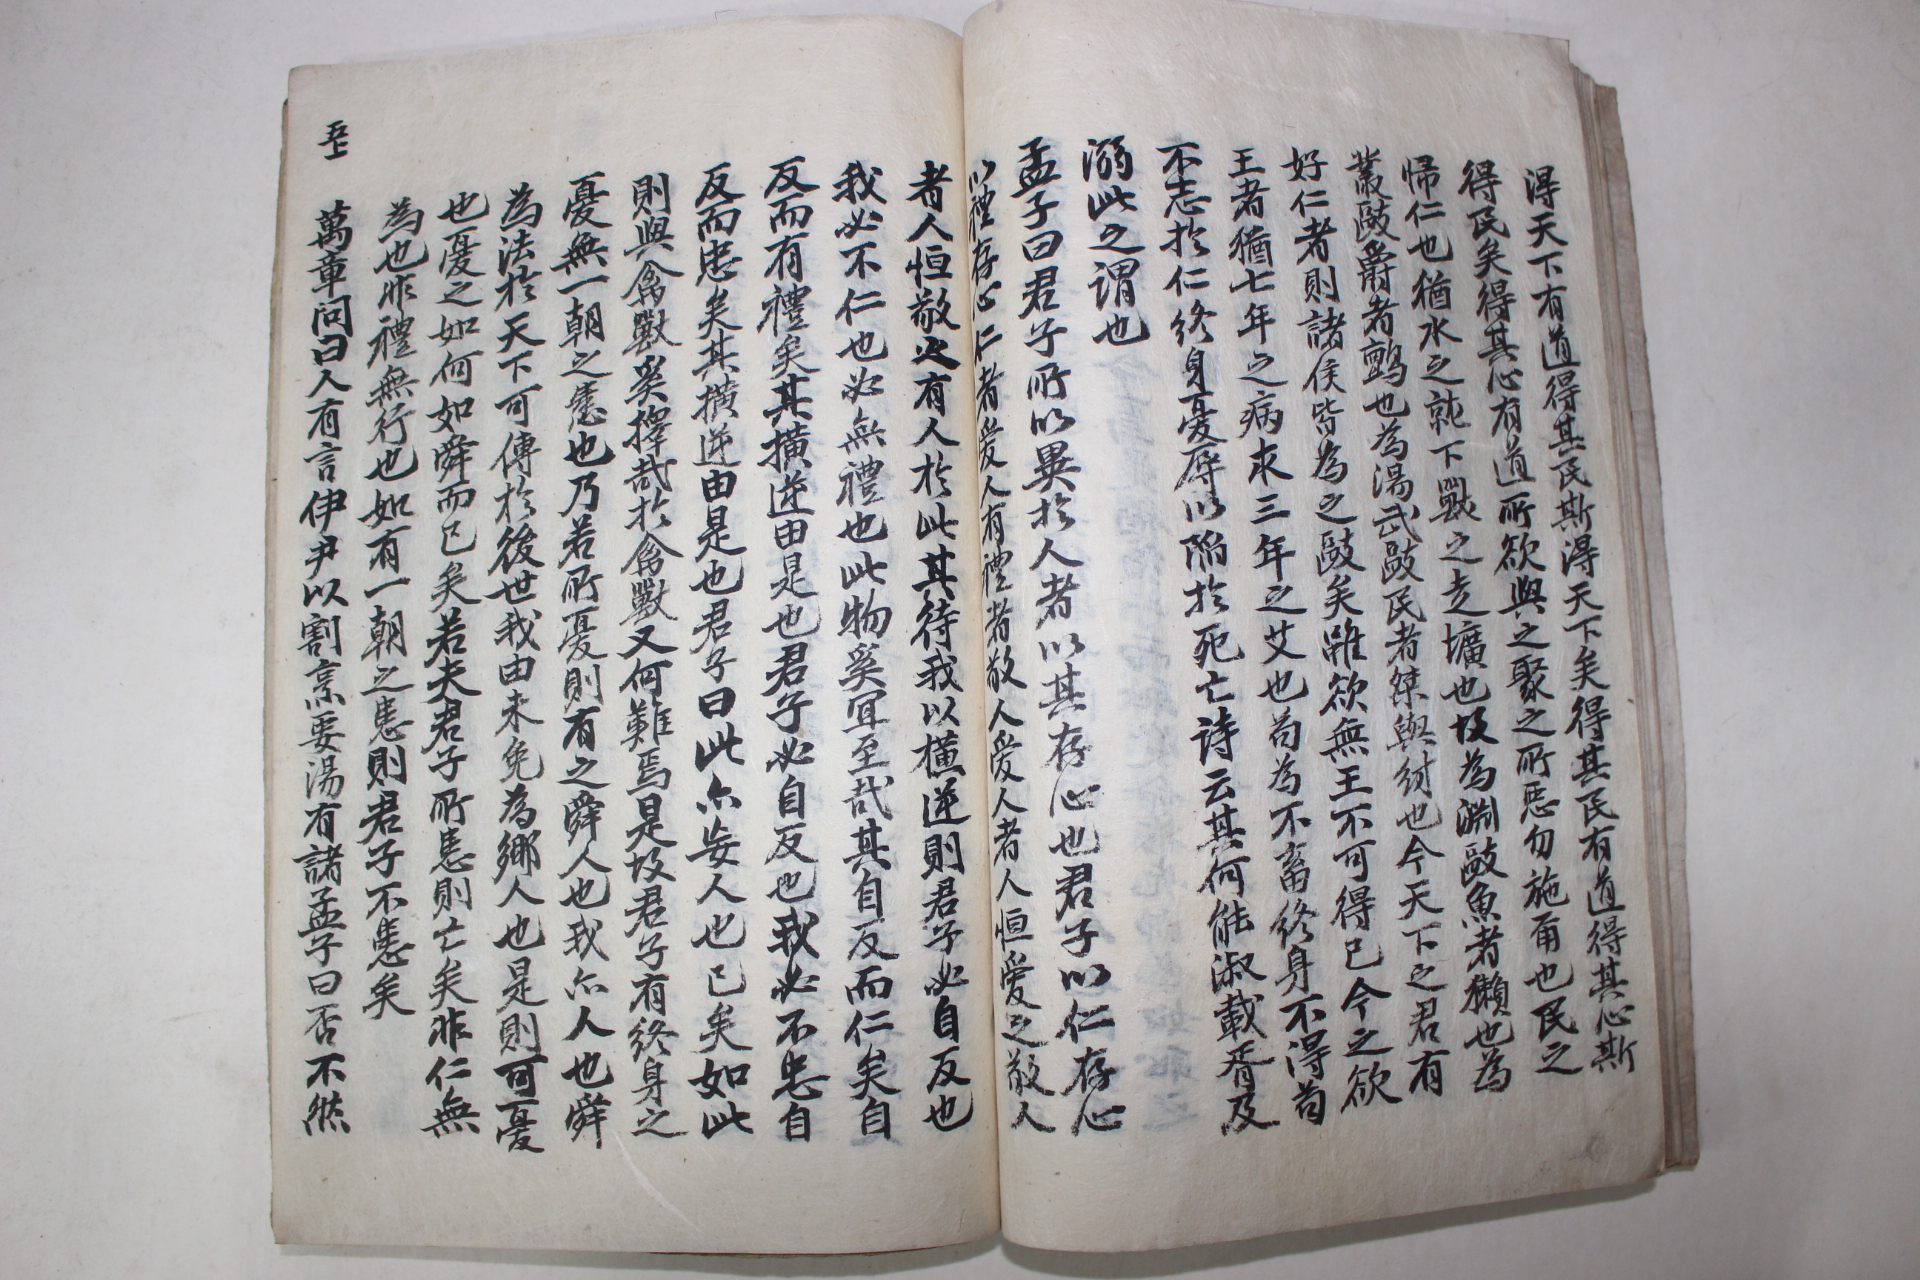 得天下有道得其民斯得天下矣得其民有道得其心斯
得民矣得其心有道所欲與之聚之所惡勿施甭也民之
帰仁也猶水之就下獸之走壙也故為淵敺魚者獺也為
叢敺爵者鸇也為湯武敺民者桀與紂也今天下之君有
好仁者則諸侯皆為之敺矣雖欲無王不可得已今之欲
王者猶七年之病求三年之艾也苟為不畜終身不得苟
不志於仁終身憂辱以陥於死亡詩云其何能淑載胥及
溺此之謂也
孟子曰君子所以異於人者以其存心也君子以仁存心
以禮存心仁者愛人有禮者敬人愛人者人恒愛之敬人
者人恒敬之有人於此其待我以横逆則君子必自反也
我必不仁也必無禮也此物奚冝至哉其自反而仁矣自
反而有禮矣其横逆由是也君子必自反也我必不忠自
反而忠矣其横逆由是也君子曰此亦妄人也已矣如此
則與禽獸奚擇哉於禽獸又何難焉是故君子有終身之
憂無一朝之患也乃若所憂則有之舜人也我亦人也舜
為法於天下可傳於後世我由未免為鄉人也是則可憂
也憂之如何如舜而已矣若夫君子所患則亡矣非仁無
為也非禮無行也如有一朝之患則君子不患矣
萬章問曰人有言伊尹以割烹要湯有諸孟子曰否不然
五上